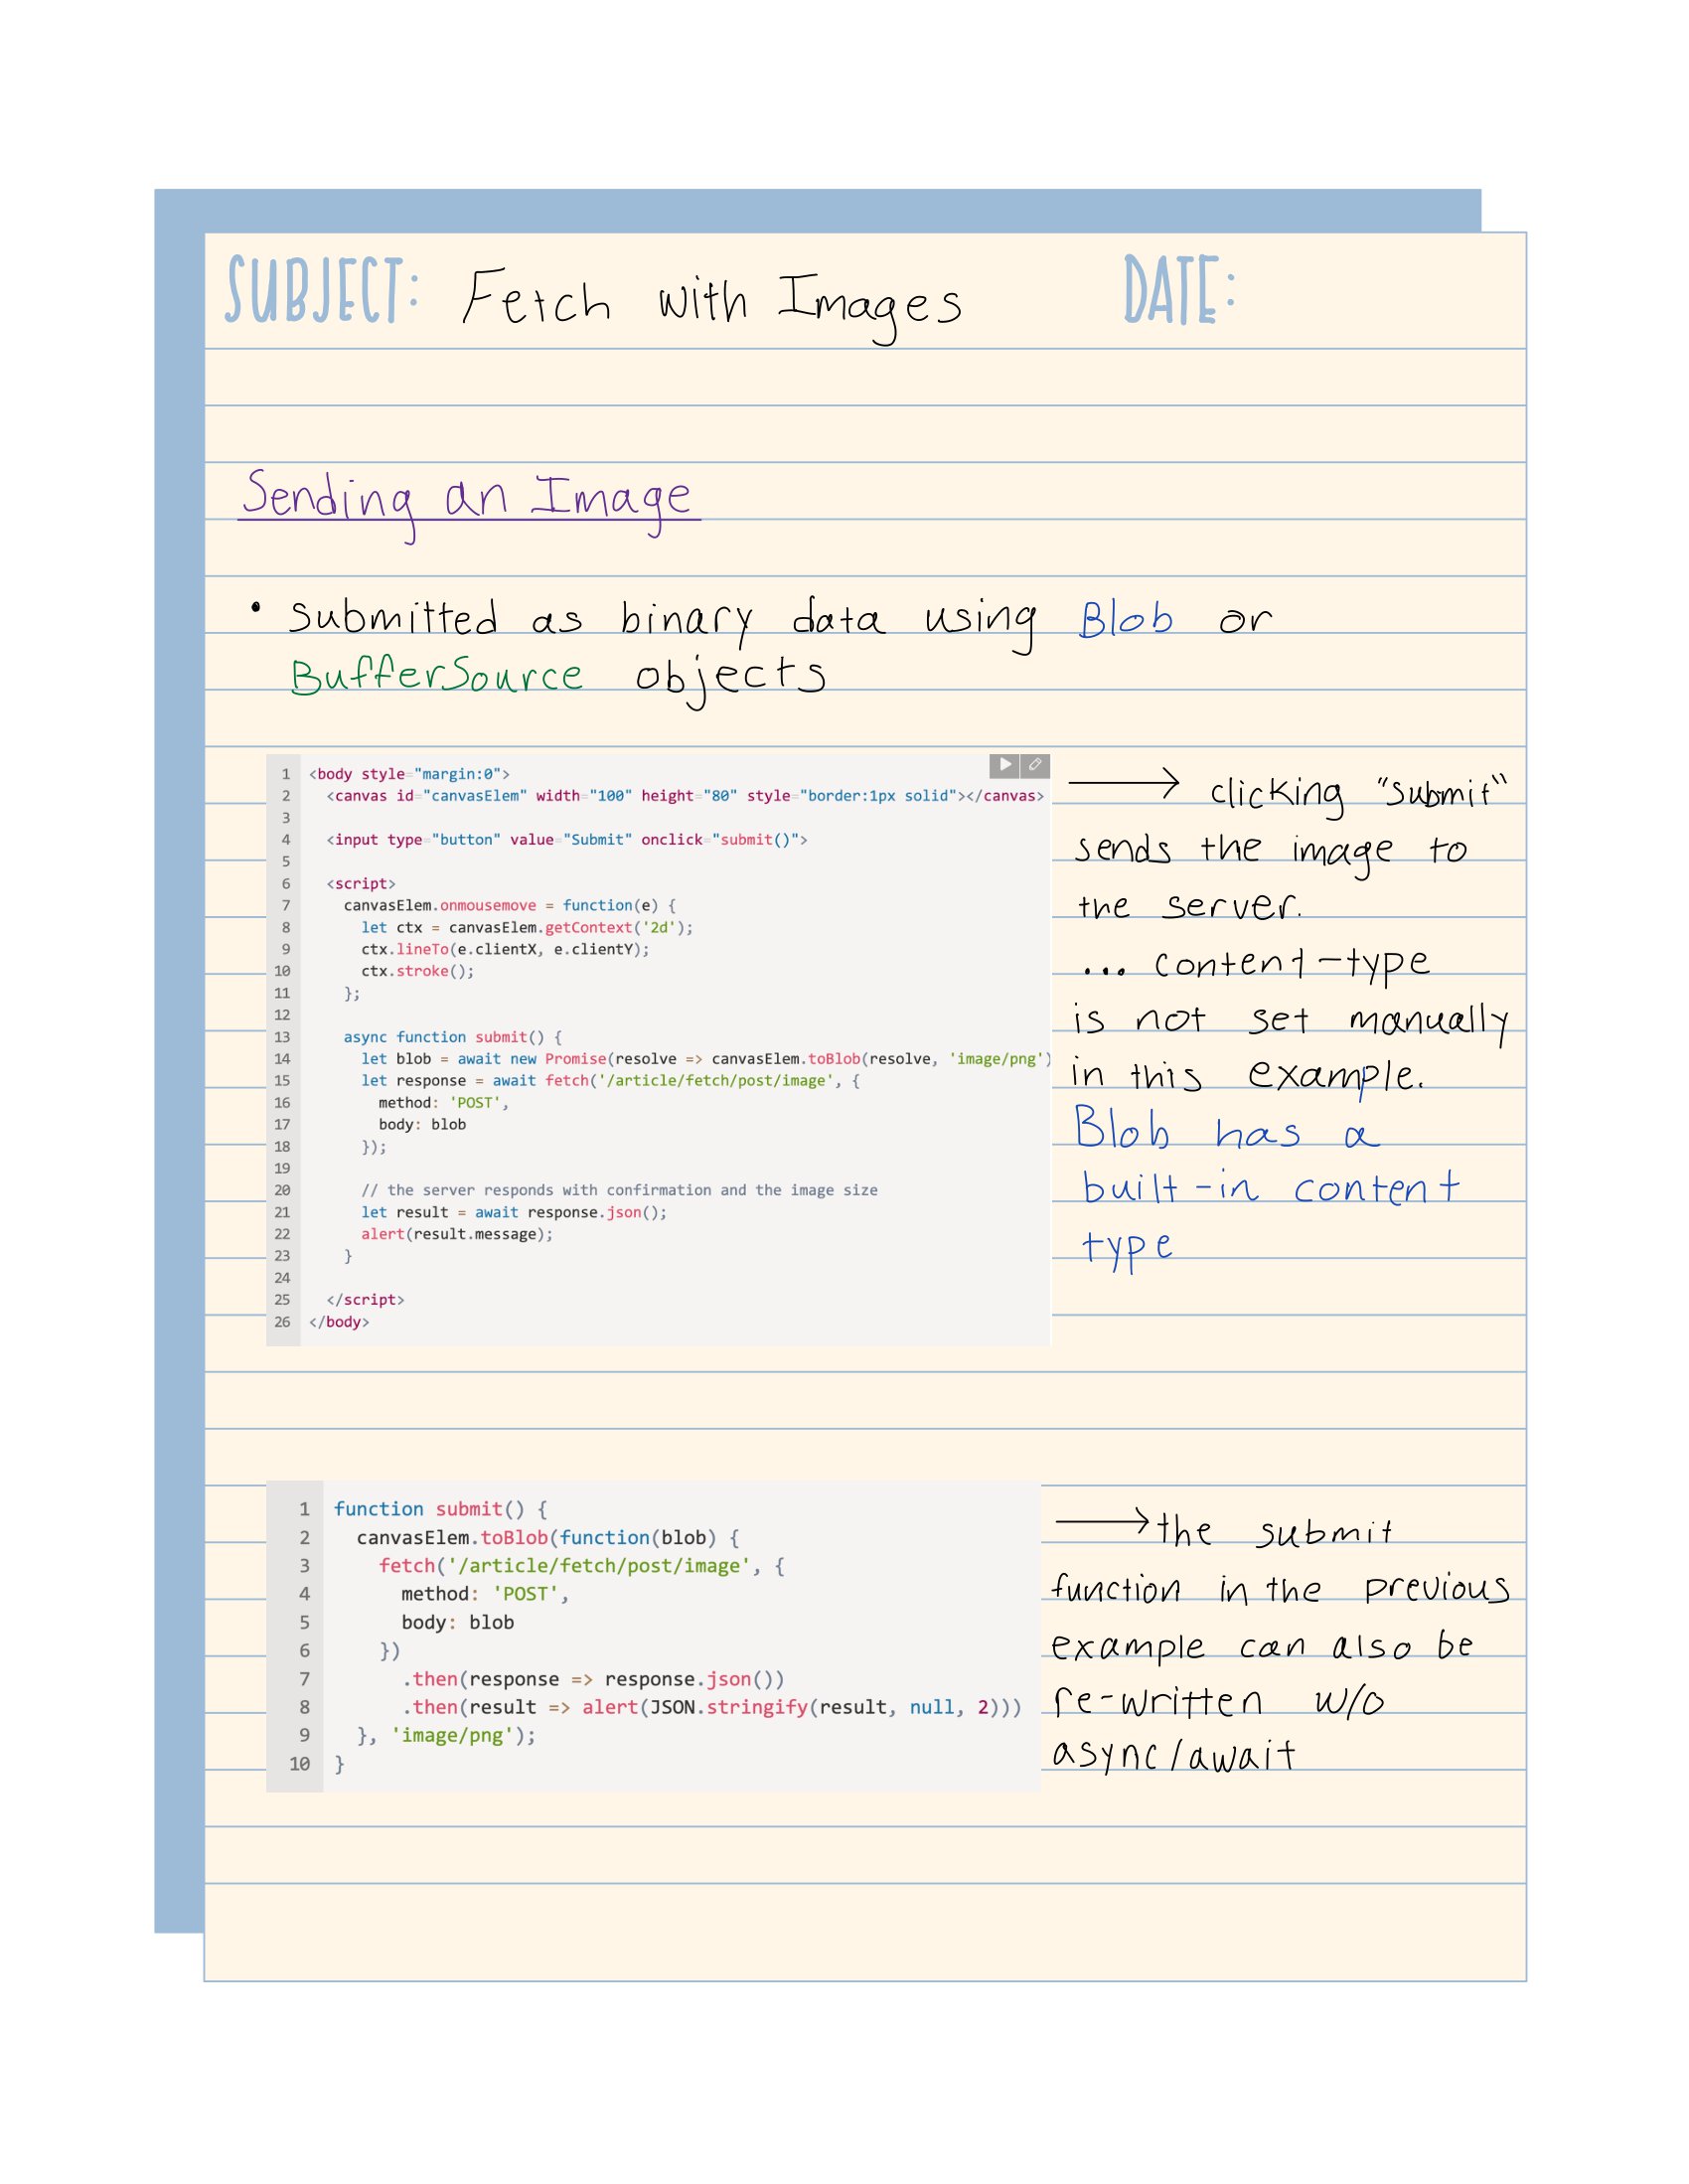 SUBJECT: Fetch with Images DATE:
Sending an Image
• submitted as binary data using Blob or
BufferSource objects
1 <body style="margin:0">
2 <canvas id="canvasElem" width="100" height="80" style="border:1px solid"></canvas>
3
4 <input type="button" value="Submit" onclick="submit()">
5
6 <script>
7 canvasElem.onmousemove = function(e) {
8 let ctx = canvasElem.getContext('2d');
9 ctx.lineTo(e.clientX, e.clientY);
10 ctx.stroke();
11 };
12
13 async function submit() {
14 let blob = await new Promise(resolve => canvasElem.toBlob(resolve, 'image/png')
15 let response = await fetch('/article/fetch/post/image', {
16 method: 'POST',
17 body: blob
18 });
19
20 // the server responds with confirmation and the image size
21 let result = await response.json();
22 alert(result.message);
23 }
24
25 </script>
26 </body>
→ clicking "submit"
sends the image to
the server.
... content-type
is not set manually
in this example.
Blob has a
built-in content
type
1 function submit() {
2 canvasElem.toBlob(function(blob) {
3 fetch('/article/fetch/post/image', {
4 method: 'POST',
5 body: blob
6 })
7 .then(response => response.json())
8 .then(result => alert(JSON.stringify(result, null, 2)))
9 }, 'image/png');
10 }
→ the submit
function in the previous
example can also be
re-written w/o
async/await